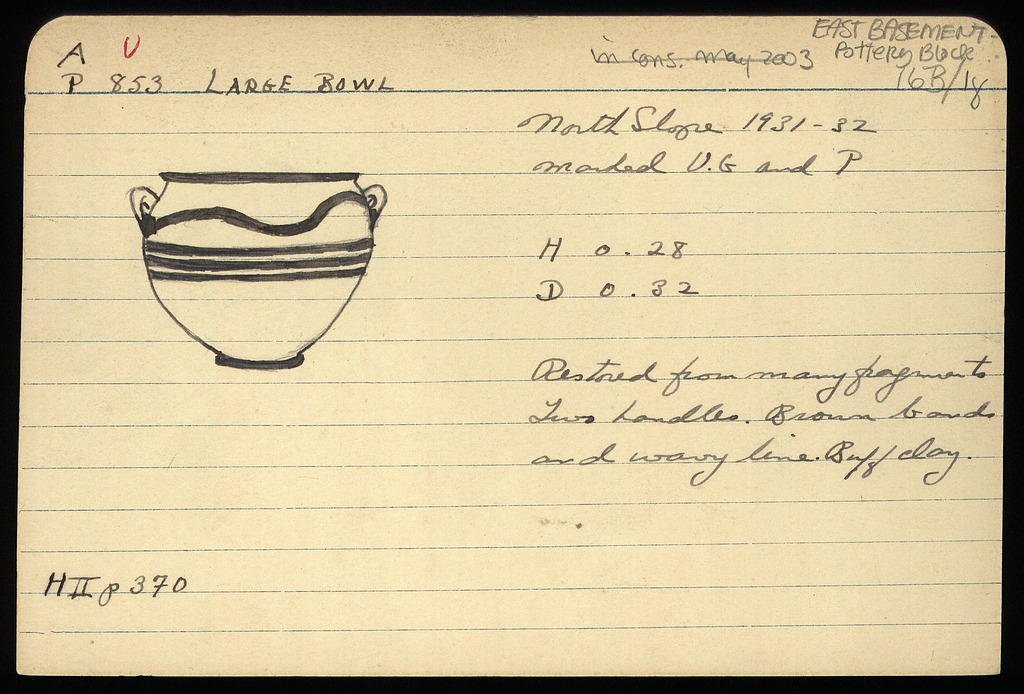 A U
P 853 LARGE BOWL
in cons. may 2003
EAST BASEMENT-
Pottery Block
16B/18
North Slope 1931-32
marked U.G and P
H 0.28
D 0.32
Restored from many fragments
Two handles. Brown bands
and wavy line. Buff clay.
H II p 370